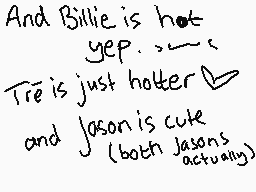 And Billie is hot
yep.
Tré is just hotter ♡
and Jason is cute
(both Jasons
actually)